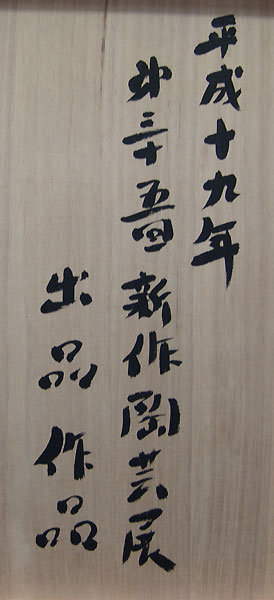 平成十九年
第三十五回新作陶芸展
出品作品